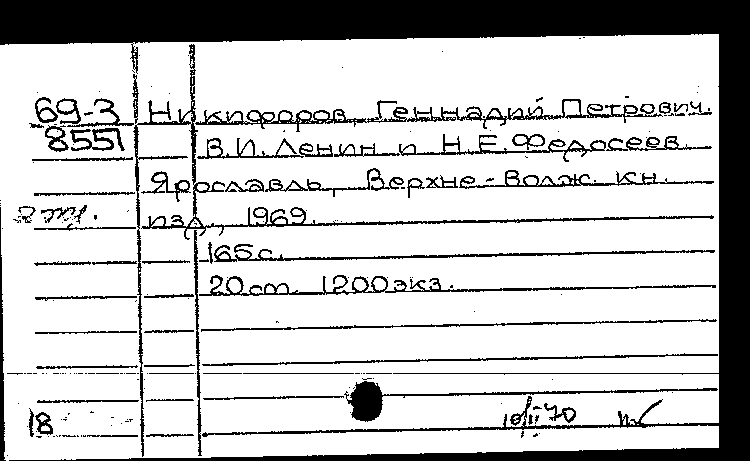 69-3 Никифоров, Геннадий Петрович.
8551 В.И. Ленин и Н.Е. Федосеев.
Ярославль, Верхне-Волж. кн.
изд., 1969.
165 с.
20 cm. 1200 экз.
18 10/II 70